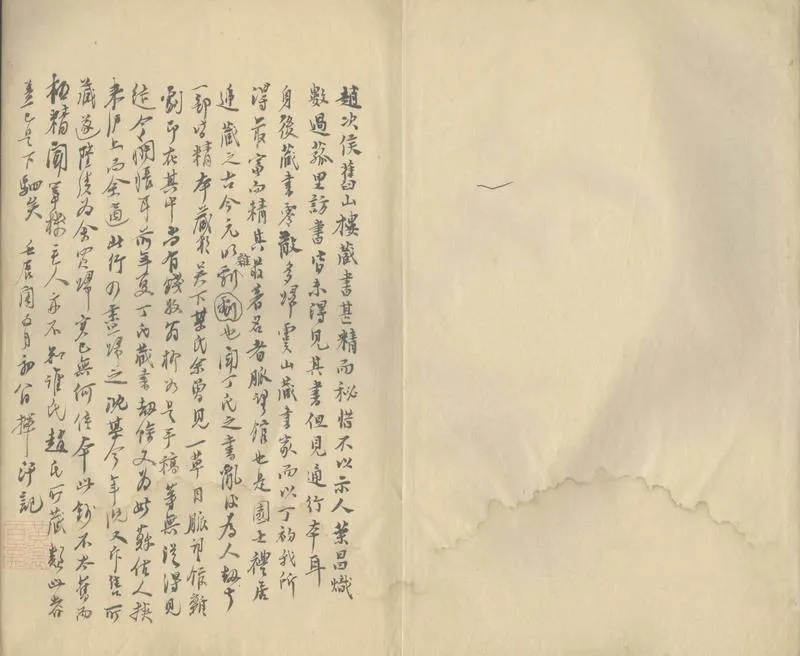 趙次侯舊山樓藏書甚精而秘惜不以示人葉昌熾
數過菰里訪書皆未得見其書但見通行本耳
身後藏書零散多歸虞山藏書家而以丁初我所
得最富而精其最著名者脈望館也是園士禮居
遞藏之古今元明雜劇也聞丁氏之書亂後為人劫去
一部皆精本藏於吳下某氏余曾見一草目脈望館雜
劇即在其中尚有錢牧翁柳如是手稿等無從得見
迄今悵悵耳前年夏丁氏藏書劫餘又為蘇估人挾
來滬上而余適北行力盡歸之沈某今年沈又斥售所
藏遂陸續為余買歸實已無何佳本此鈔不太舊而
極精聞軍機主人亦不知誰氏趙氏所藏類此者
蓋已是下駟矣 壬辰閏五月初
記